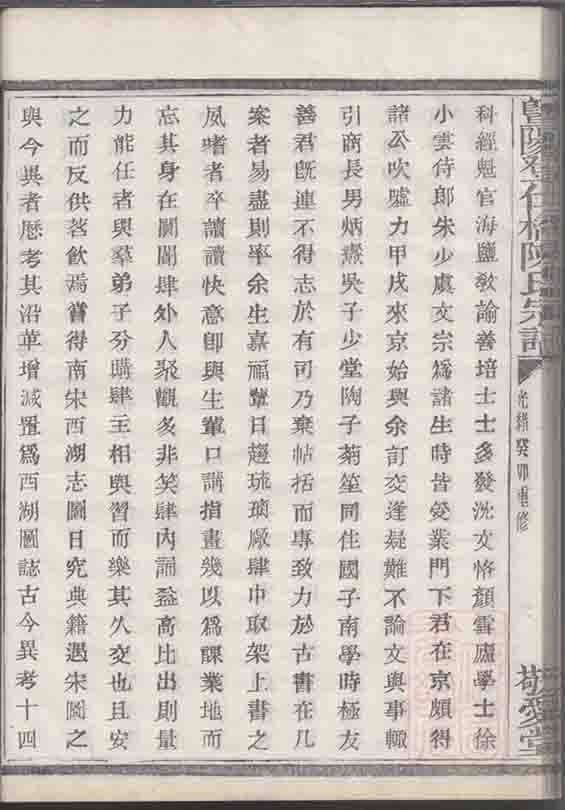 暨陽孝仁橋陳氏宗譜
光緒癸卯重修
敬愛堂
科經魁官海鹽敎諭善培士士多發沈文恪顏雪廬學士徐
小雲侍郎朱少虞文宗爲諸生時皆受業門下君在京頗得
諸公吹噓力甲戌來京始與余訂交逢疑難不論文與事輒
引商長男炳燾吳子少堂陶子菊笙同住國子南學時極友
善君旣連不得志於有司乃棄帖括而專致力於古書在几
案者易盡則率余生嘉福豐日趨琉璃廠肆巾取架上書之
夙嗜者卒讀讀快意卽與生輩口講指畫幾以爲課業地而
忘其身在闤闠肆外人聚觀多非笑肆內誦益高比出則量
力能任者與羣弟子分購肆主相與習而樂其久交也且安
之而反供茗飮焉嘗得南宋西湖志圖日究典籍遇宋圖之
與今異者歷考其沿革增減置爲西湖圖誌古今異考十四